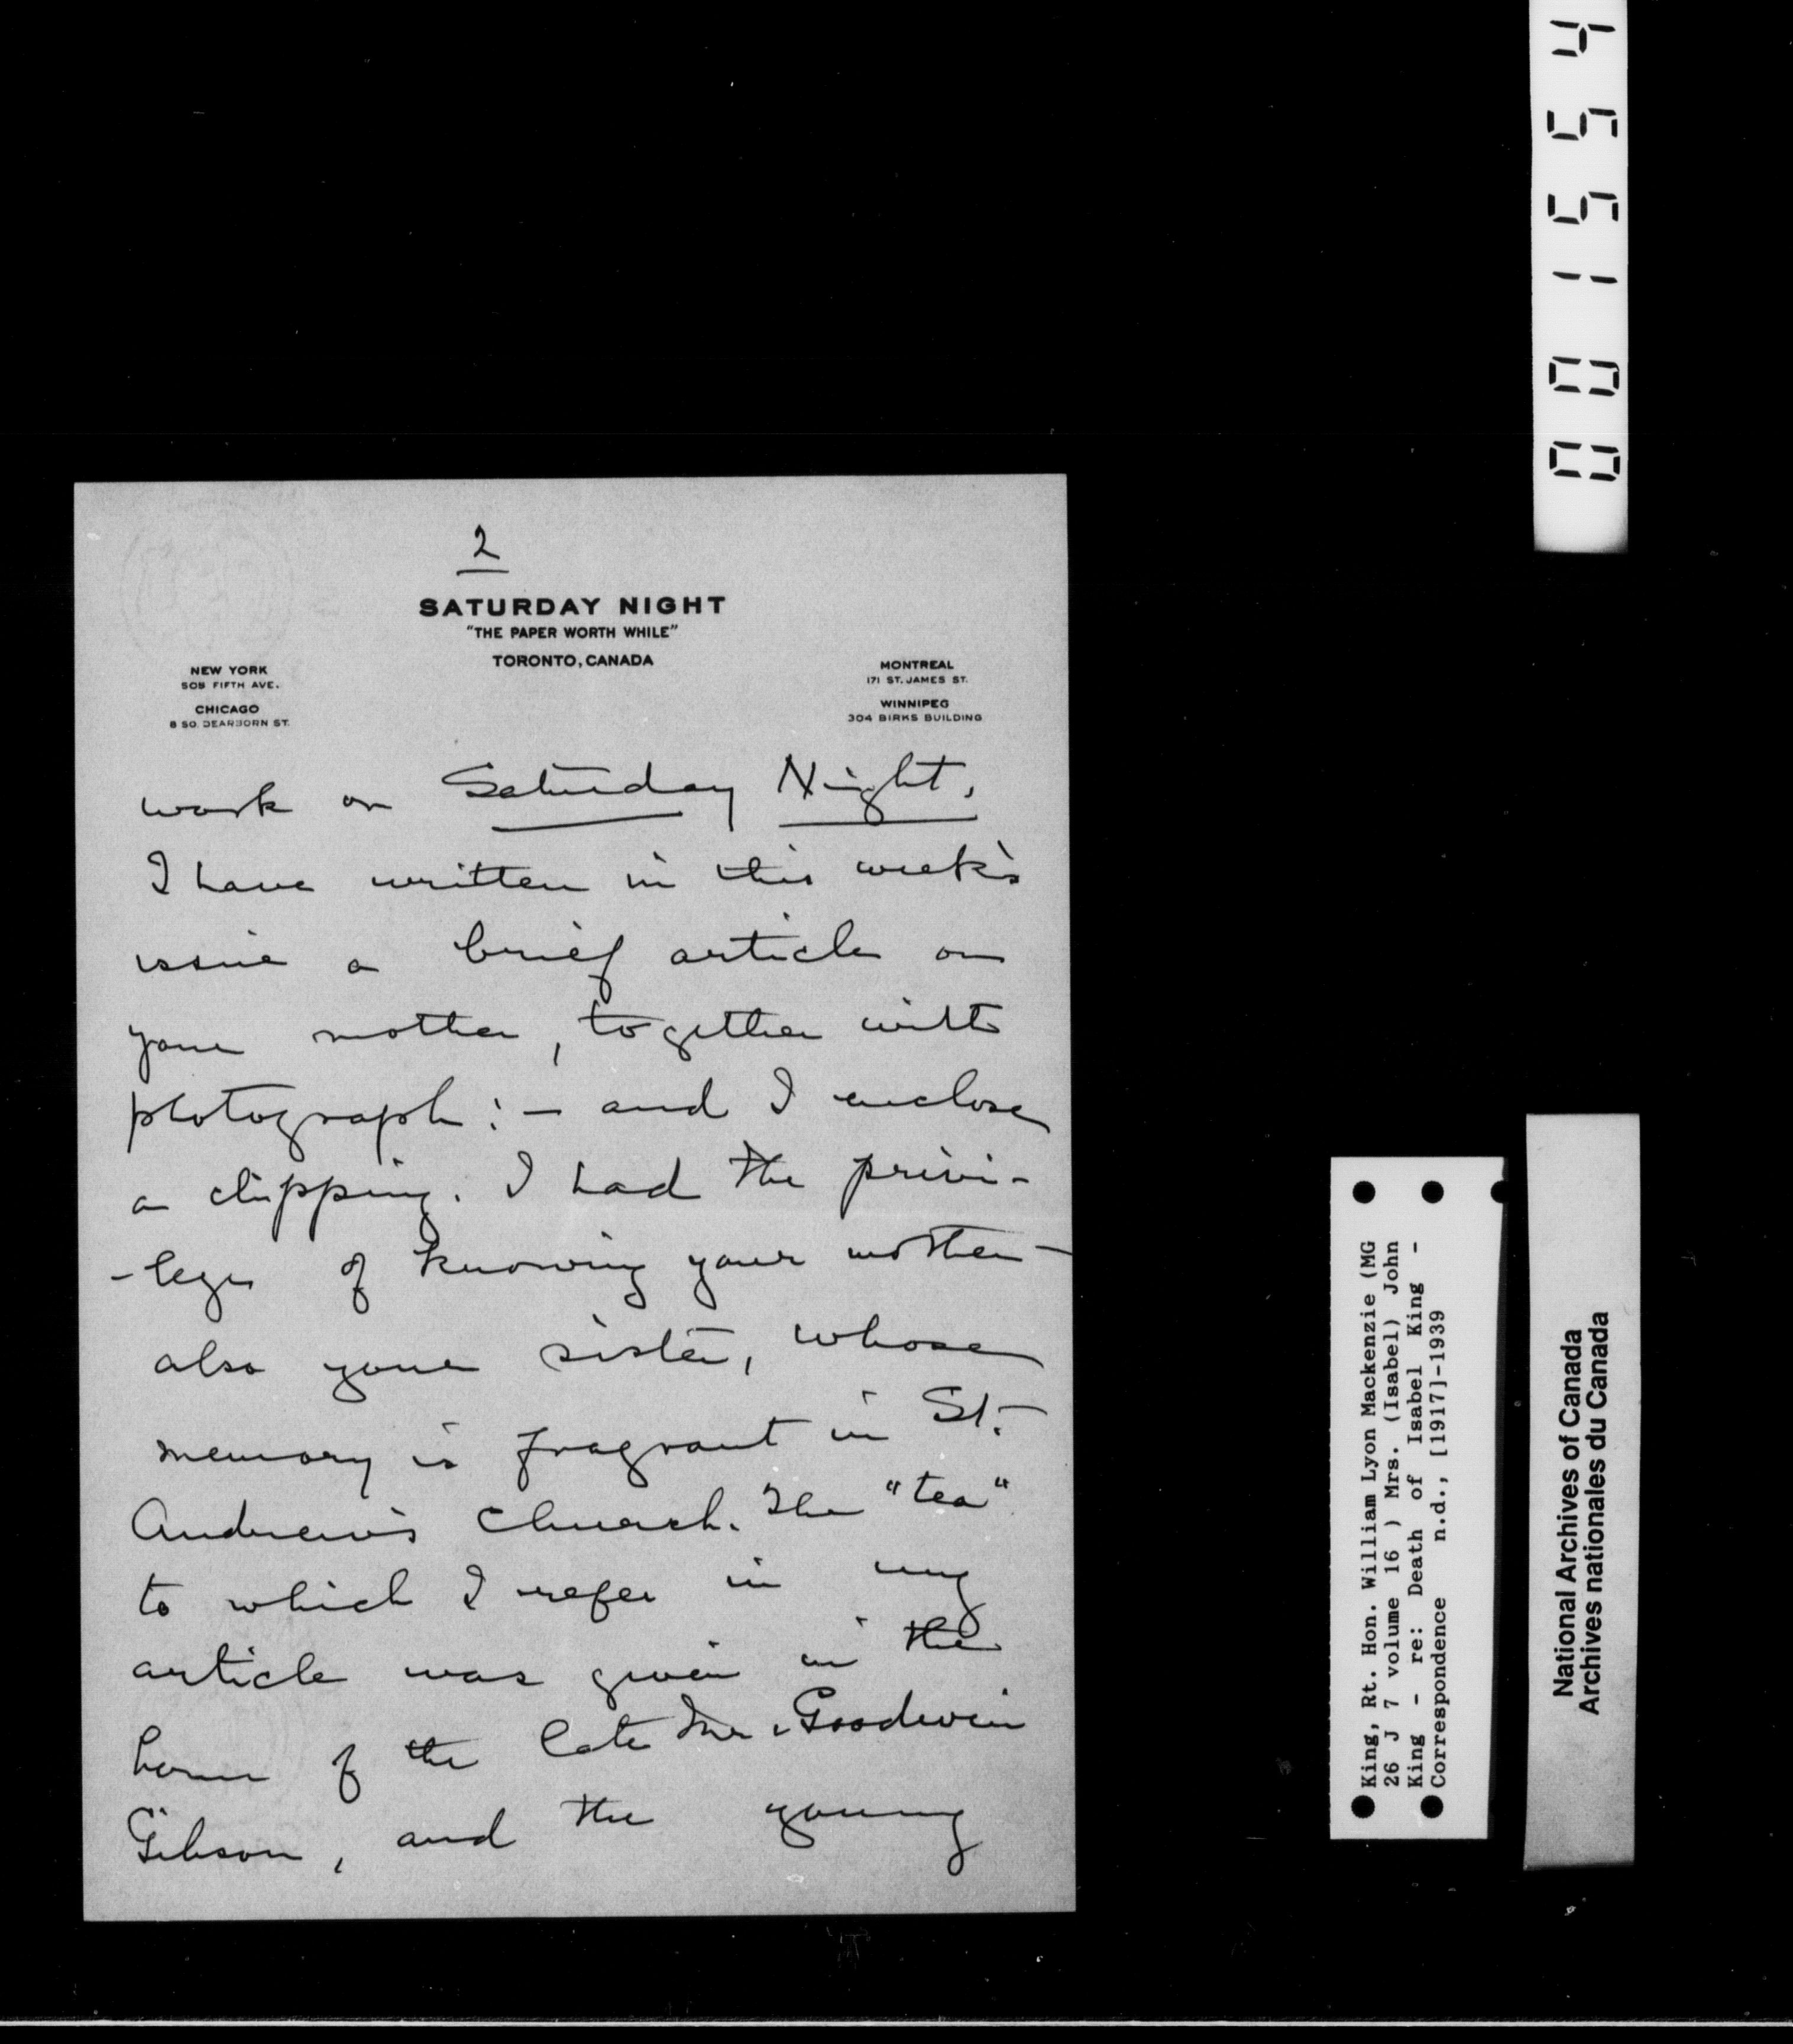 2
SATURDAY NIGHT
"THE PAPER WORTH WHILE"
TORONTO, CANADA
NEW YORK
505 FIFTH AVE.
CHICAGO
8 SO. DEARBORN ST.
MONTREAL
171 ST. JAMES ST.
WINNIPEG
304 BIRKS BUILDING
work on Saturday Night.
I have written in this week's
issue a brief article on
your mother, together with
photograph: — and I enclose
a clipping. I had the privi-
-lege of knowing your mother —
also your sister, whose
memory is fragrant in St.
Andrew's Church. The "tea"
to which I refer in my
article was given in the
home of the late Mr. Goodwin
Gibson, and the young
001554
King, Rt. Hon. William Lyon Mackenzie (MG
26 J 7 volume 16 ) Mrs. (Isabel) John
King - re: Death of Isabel King -
Correspondence n.d., [1917]-1939
National Archives of Canada
Archives nationales du Canada